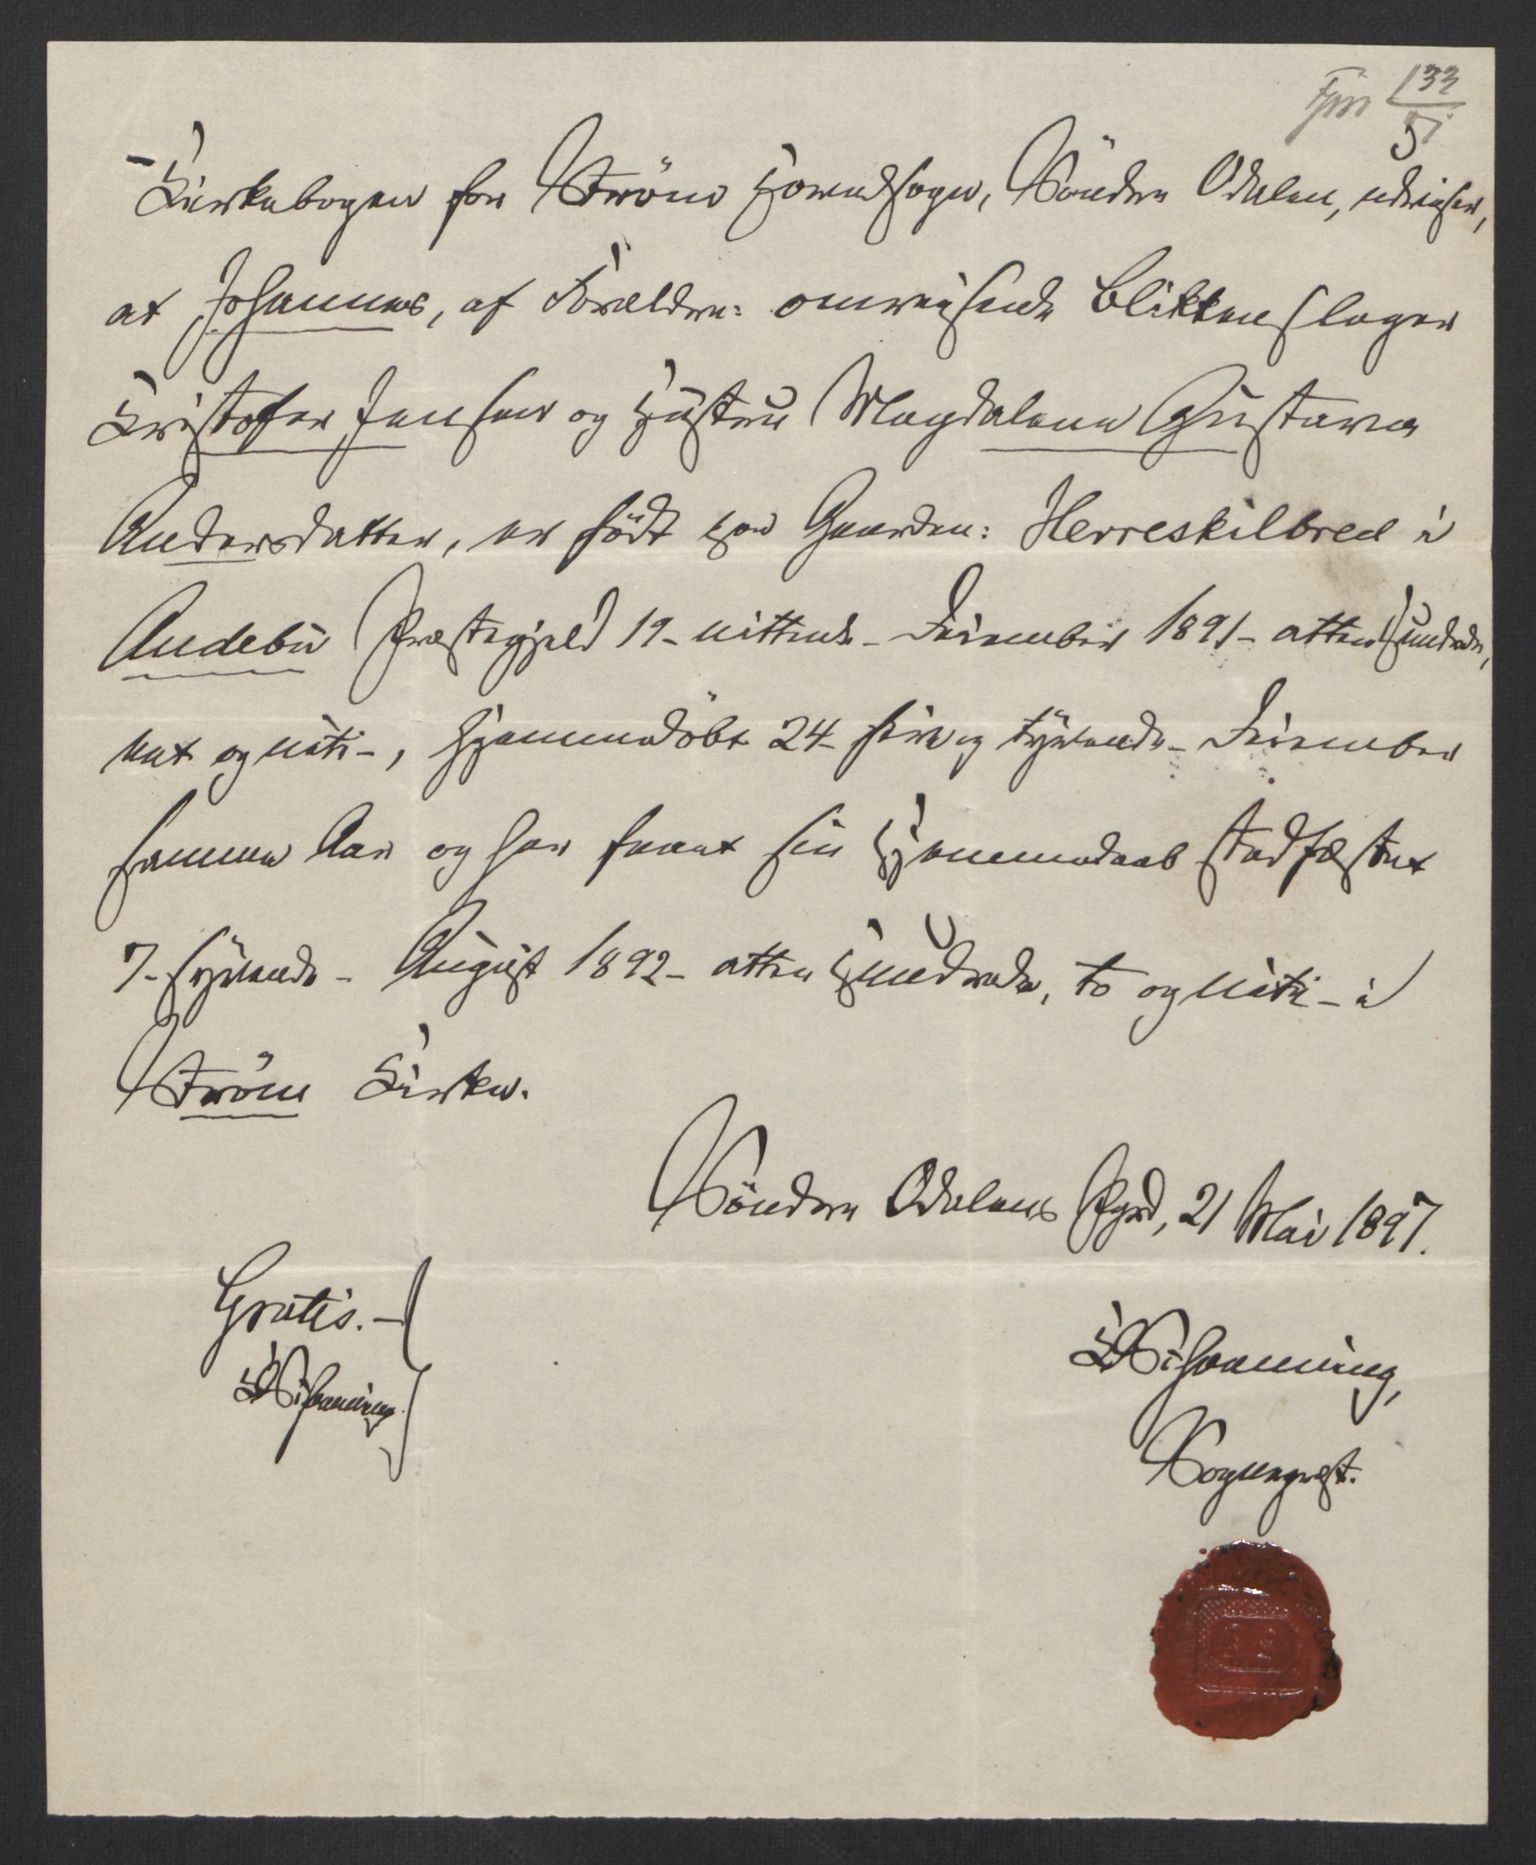 133
5
Kirkebogen for Ström Hovedsogn, Söndre Odalen, udviser,
at Johannes, af Forældre: omreisende Blikkenslager
Kristofer Jensen og Hustru Magdalena Gustava
Andersdatter, er född paa Gaarden: Herreskilbred i
Andebu Præstegjeld 19 - nittende - December 1891 - attenhundrede,
net og niti -, hjemmedöbt 24 - fire og tyvende - December
samme Aar og har faaet sin Hjemmedaab stadfæstet
7 - syvende - August 1892 - atten Hundrede, to og niti - i
Ström Kirke.
Söndre Odalens Pgrd, 21 Mai 1897.
Gratis. -
Sogneprest.